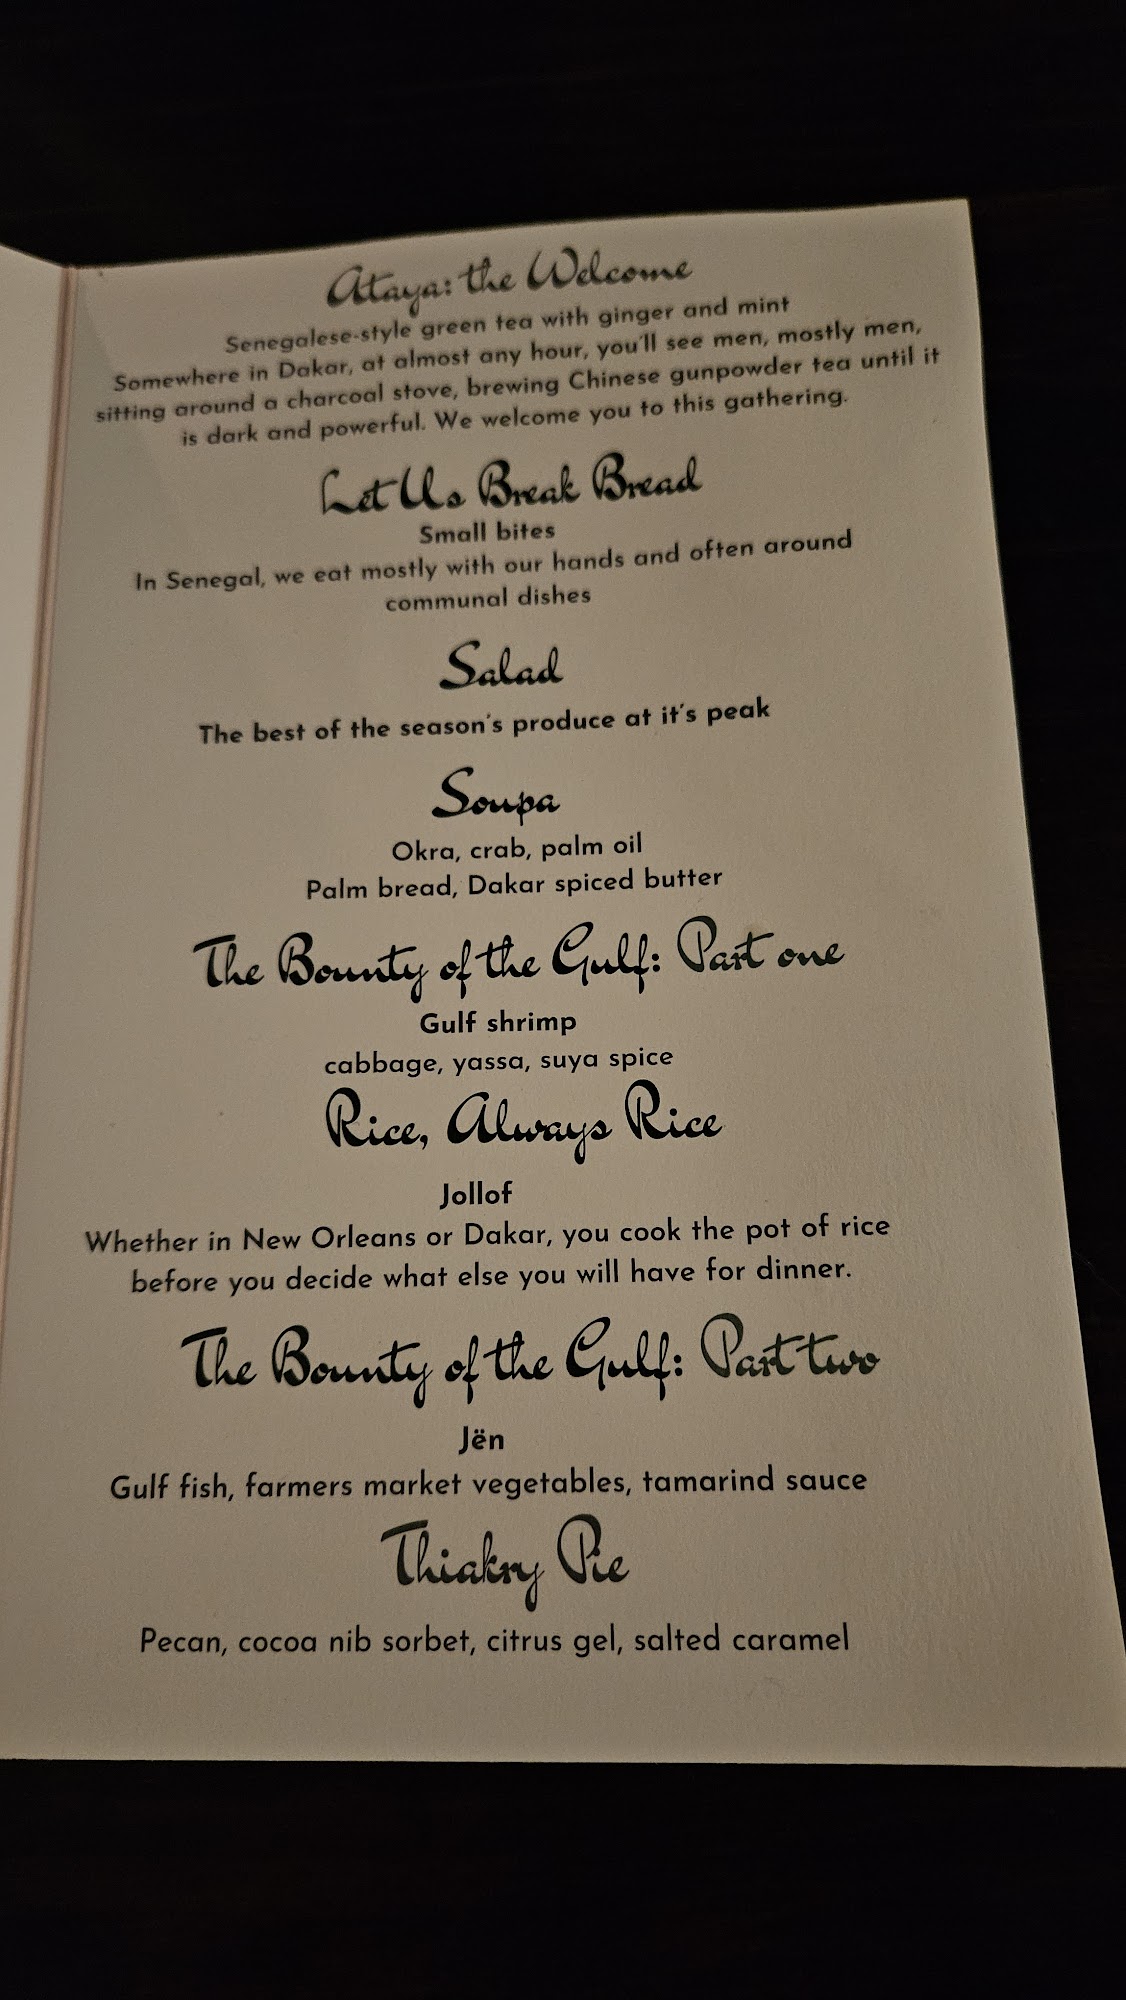 Ataya: the Welcome
Senegalese-style green tea with ginger and mint
Somewhere in Dakar, at almost any hour, you'll see men, mostly men,
sitting around a charcoal stove, brewing Chinese gunpowder tea until it
is dark and powerful. We welcome you to this gathering.
Let Us Break Bread
Small bites
In Senegal, we eat mostly with our hands and often around
communal dishes
Salad
The best of the season's produce at it's peak
Soupa
Okra, crab, palm oil
Palm bread, Dakar spiced butter
The Bounty of the Gulf: Part one
Gulf shrimp
cabbage, yassa, suya spice
Rice, Always Rice
Jollof
Whether in New Orleans or Dakar, you cook the pot of rice
before you decide what else you will have for dinner.
The Bounty of the Gulf: Part two
Jën
Gulf fish, farmers market vegetables, tamarind sauce
Thiakry Pie
Pecan, cocoa nib sorbet, citrus gel, salted caramel